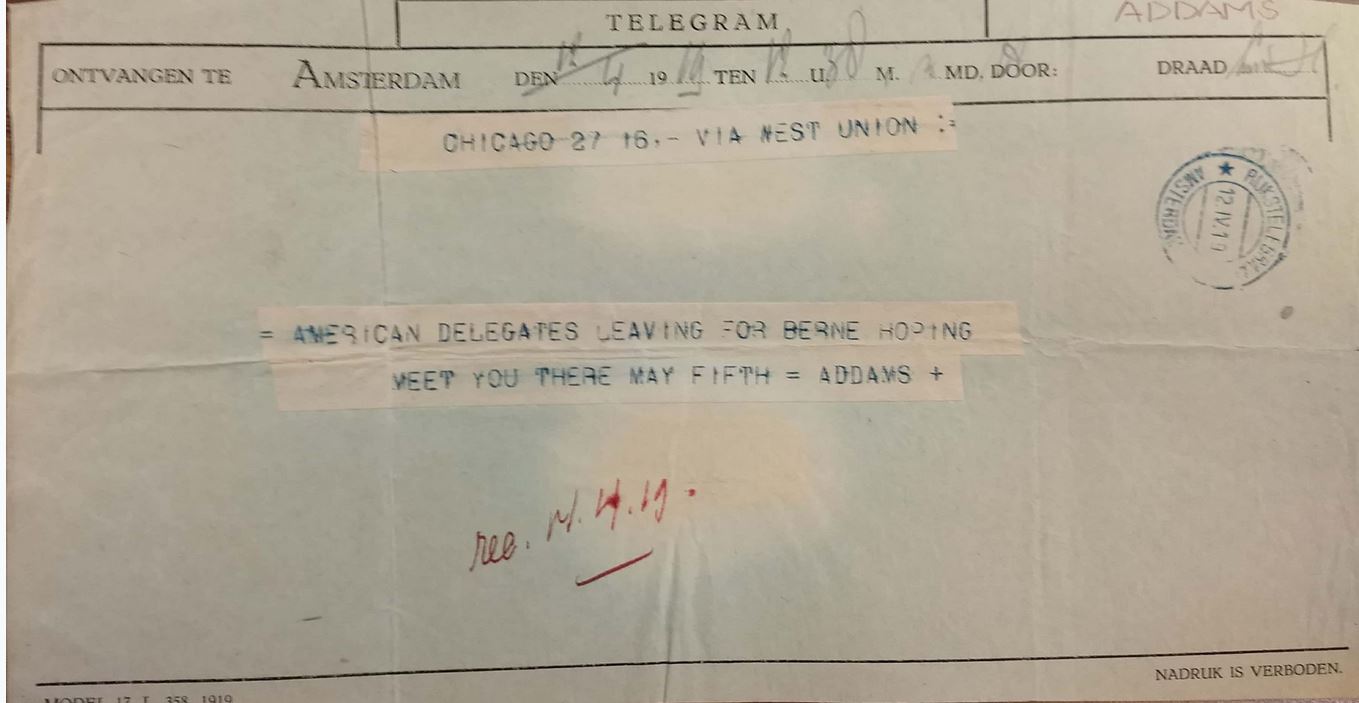 TELEGRAM
ADDAMS
ONTVANGEN TE AMSTERDAM DEN 12/4 1919 TEN 12 U 30 M. MD, DOOR: DRAAD
CHICAGO 27 16.- VIA WEST UNION :=
AMSTERDAM ★ RIJKSTELEGRAAF
12.IV.19
= AMERICAN DELEGATES LEAVING FOR BERNE HOPING
MEET YOU THERE MAY FIFTH = ADDAMS +
rec. 4.19.
NADRUK IS VERBODEN.
MODEL 17 358 1919